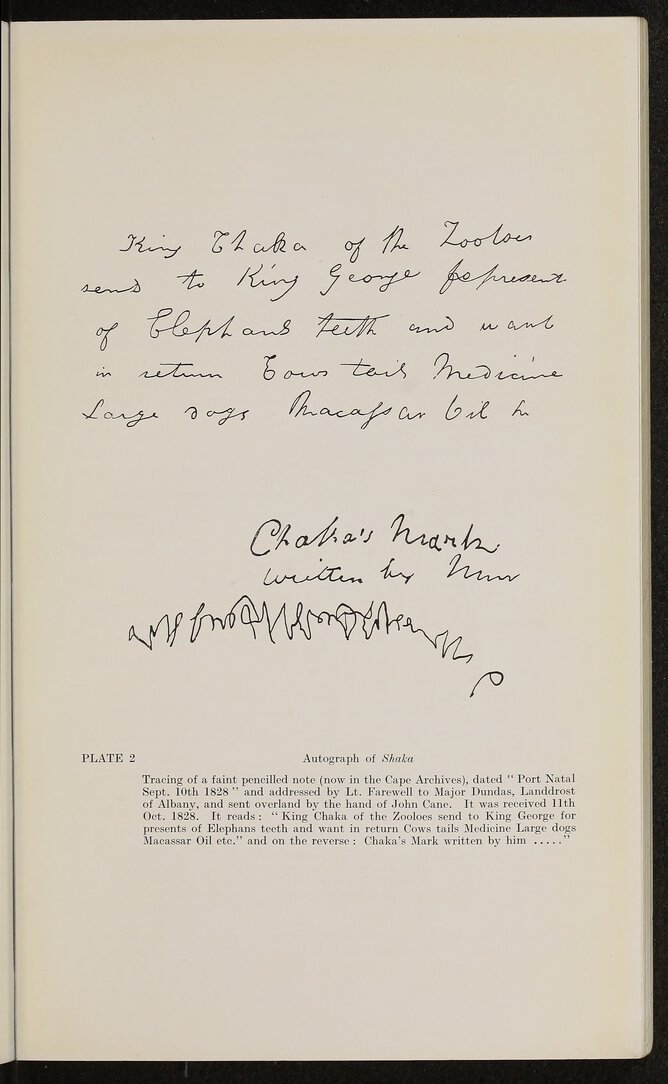 King Chaka of the Zooloes
send to King George for present
of Elephans teeth and want
in return Cows tails Medicine
Large dogs Macassar Oil
Chaka's Mark
written by him
PLATE 2
Autograph of Shaka
Tracing of a faint pencilled note (now in the Cape Archives), dated “ Port Natal
Sept. 10th 1828 ” and addressed by Lt. Farewell to Major Dundas, Landdrost
of Albany, and sent overland by the hand of John Cane. It was received 11th
Oct. 1828. It reads : “ King Chaka of the Zooloes send to King George for
presents of Elephans teeth and want in return Cows tails Medicine Large dogs
Macassar Oil etc.” and on the reverse : Chaka's Mark written by him .....”